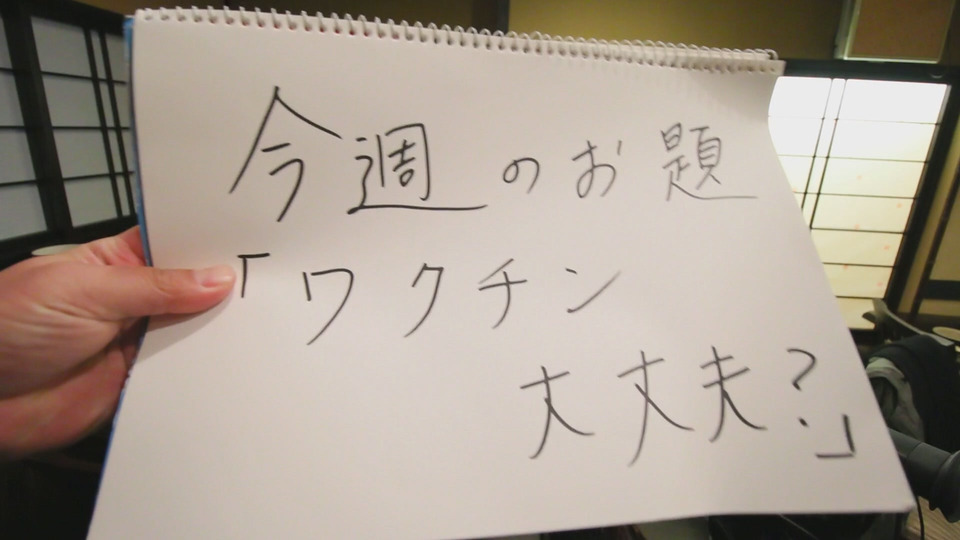 今週のお題
「ワクチン
丈丈夫?」